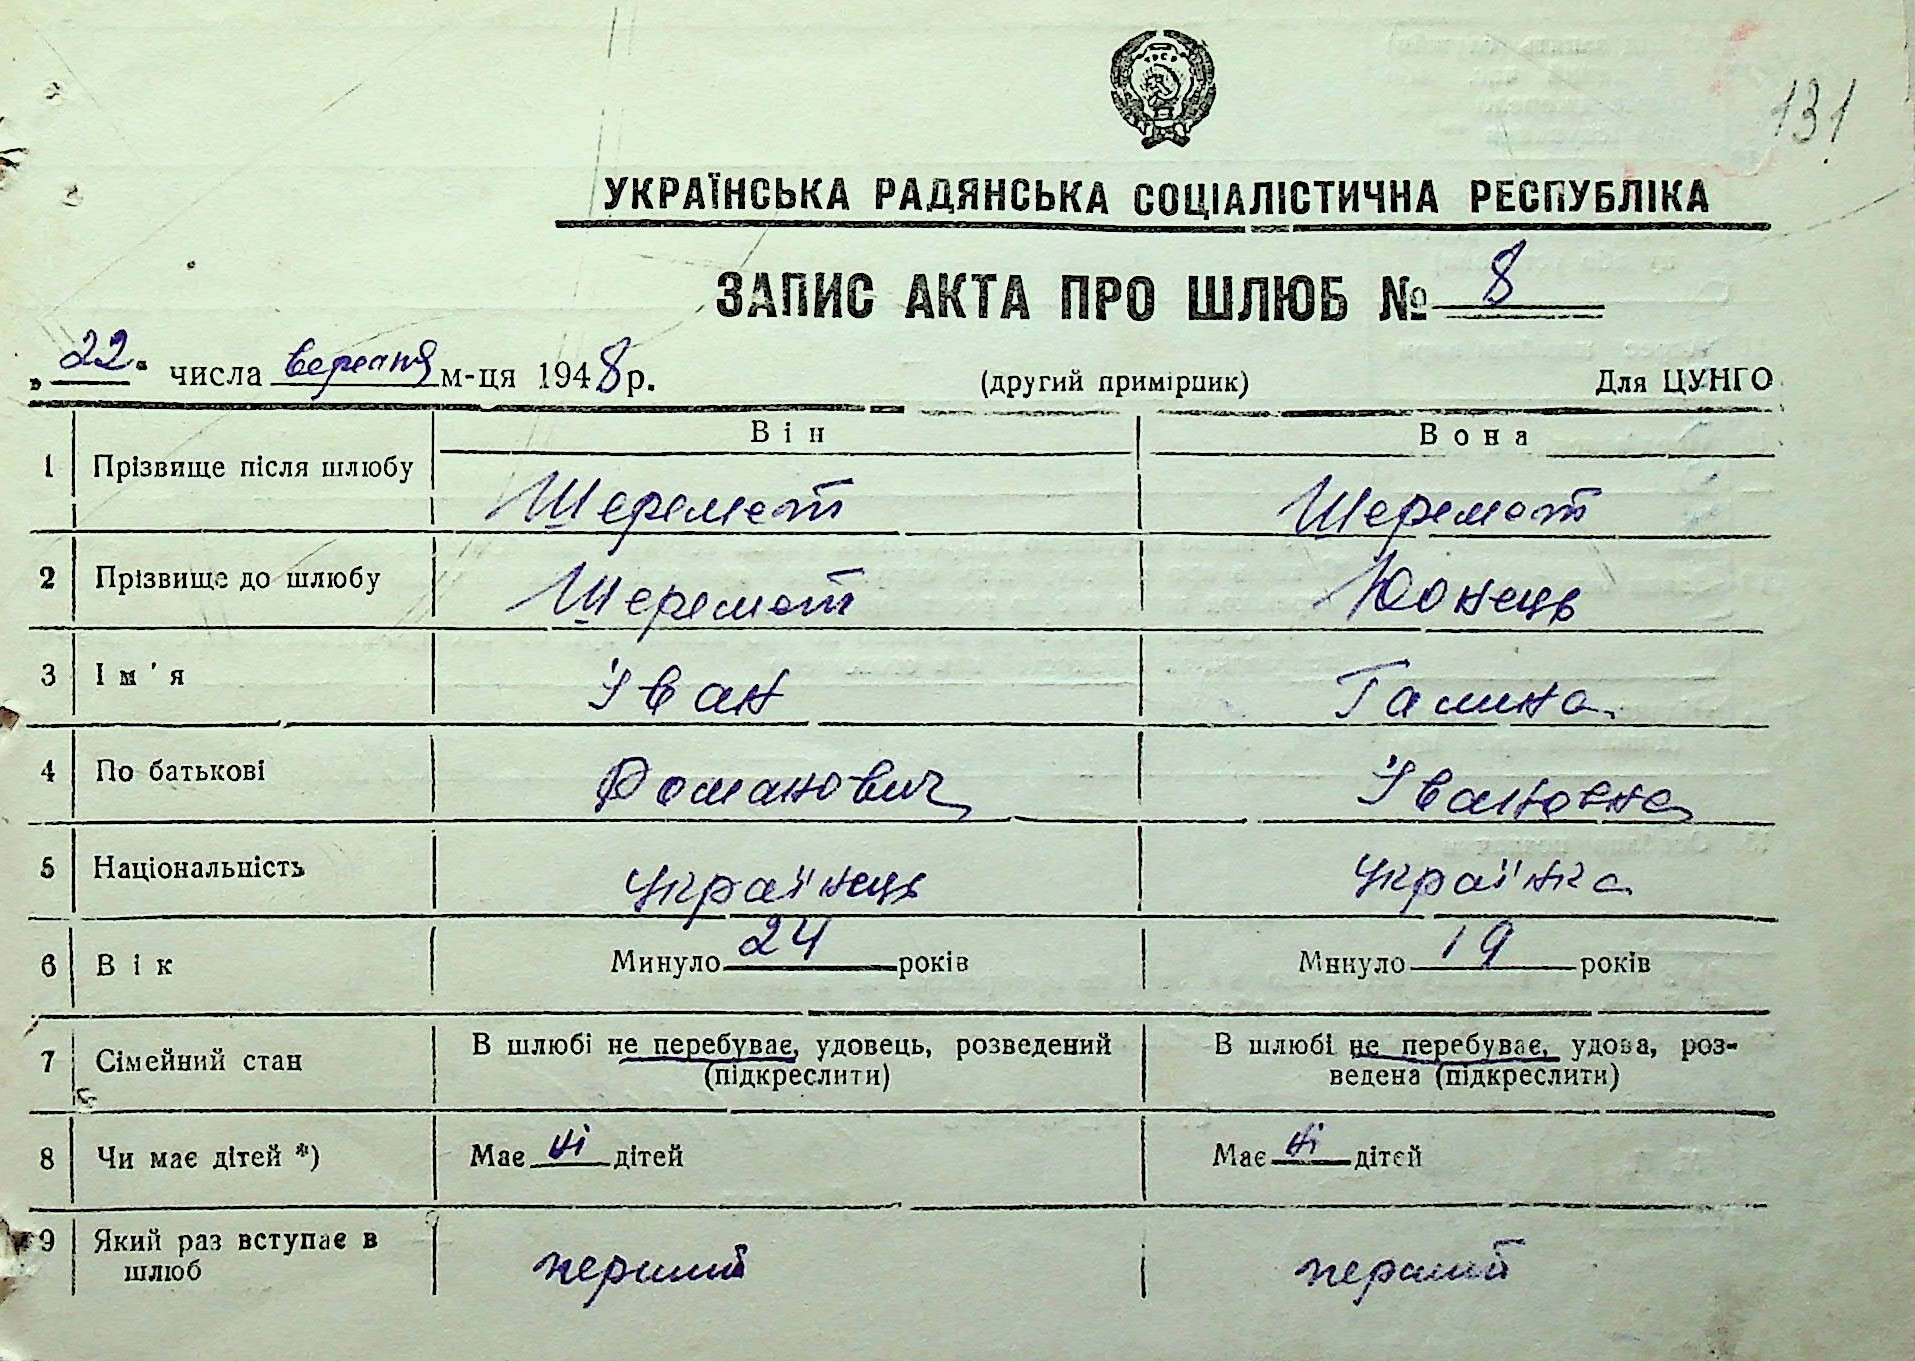 УРСР
131
УКРАЇНСЬКА РАДЯНСЬКА СОЦІАЛІСТИЧНА РЕСПУБЛІКА
ЗАПИС АКТА ПРО ШЛЮБ № 8
„22“ числа вересня м-ця 1948 р. (другий примірник) Для ЦУНГО
Він Вона
1 Прізвище після шлюбу Шеремет Шеремет
2 Прізвище до шлюбу Шеремет Юонець
3 Ім'я Іван Галина
4 По батькові Романович Івановна
5 Національність Українець Українка
6 Вік Минуло 24 років Минуло 19 років
7 Сімейний стан В шлюбі не перебуває, удовець, розведений В шлюбі не перебуває, удова, роз-
(підкреслити) ведена (підкреслити)
8 Чи має дітей *) Має ні дітей Має ні дітей
9 Який раз вступає в перший перший
шлюб